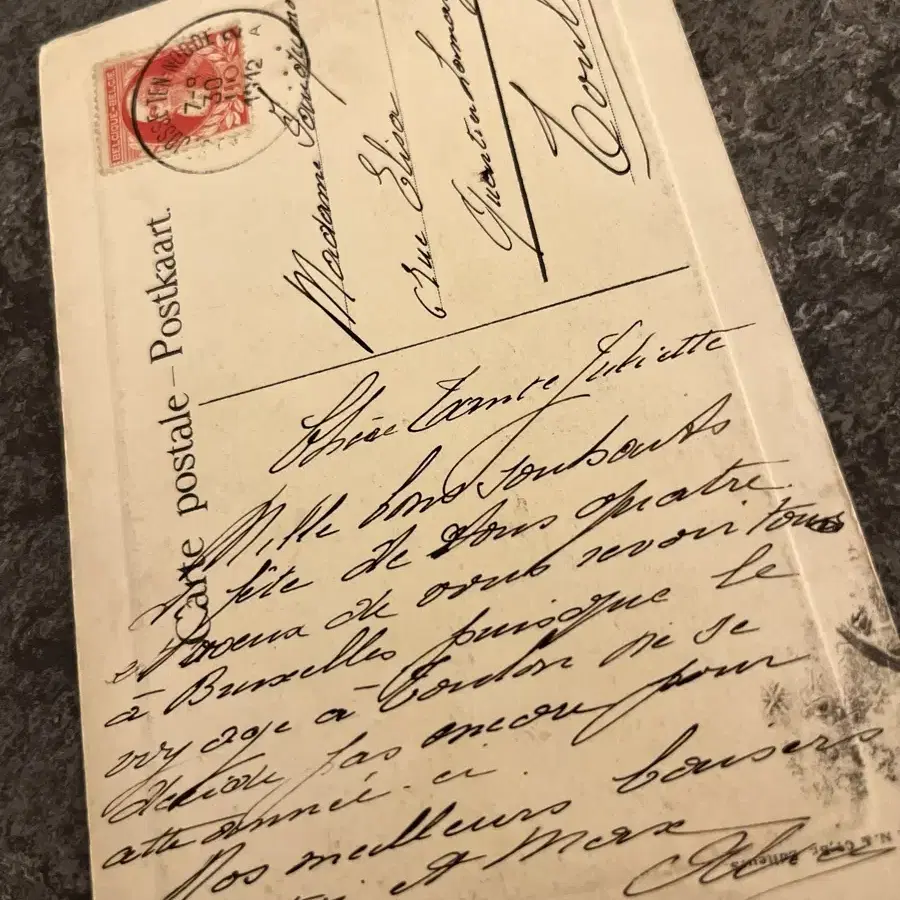 BELGIQUE-BELGIË
7-8
30
1912
A
Carte postale – Postkaart.
Madame
Rue Elisa
Quentin
Toul
Chère Tante Juliette
Mille bons souhaits
fête de vous quatre
et voeux de vous revoir tous
à Bruxelles puisque le
voyage à Toulon ne se
décide pas encore pour
cette année-ci.
Nos meilleurs baisers
et Max